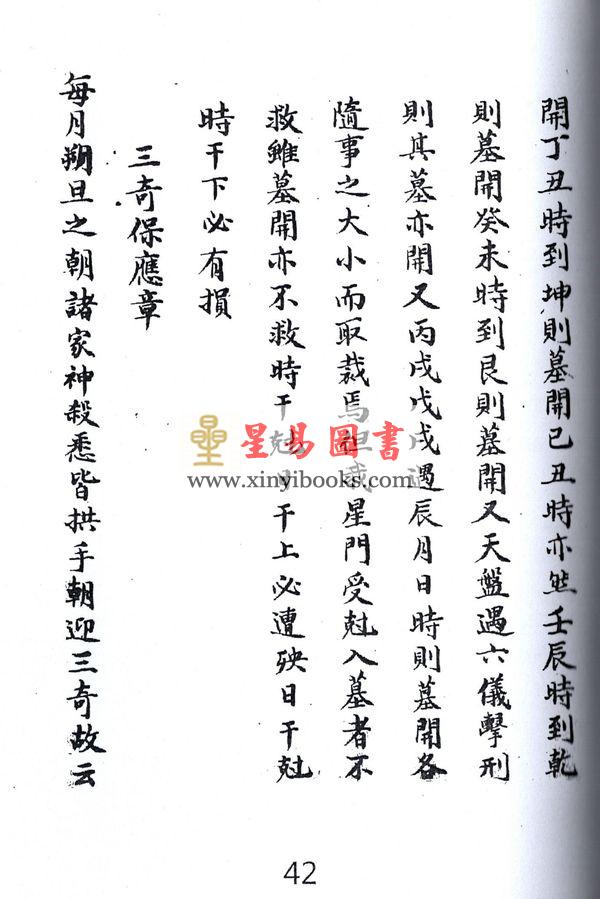 開丁丑時到坤則墓開己丑時亦然壬辰時到乾
則墓開癸未時到艮則墓開又天盤遇六儀擊刑
則其墓亦開又丙戌戊戌遇辰月日時則墓開各
隨事之大小而取裁焉星門受尅入墓者不
救雖墓開亦不救時干尅干上必遭殃日干尅
時干下必有損
三奇保應章
每月朔旦之朝諸家神殺悉皆拱手朝迎三奇故云
星易圖書
www.xinyibooks.com
42